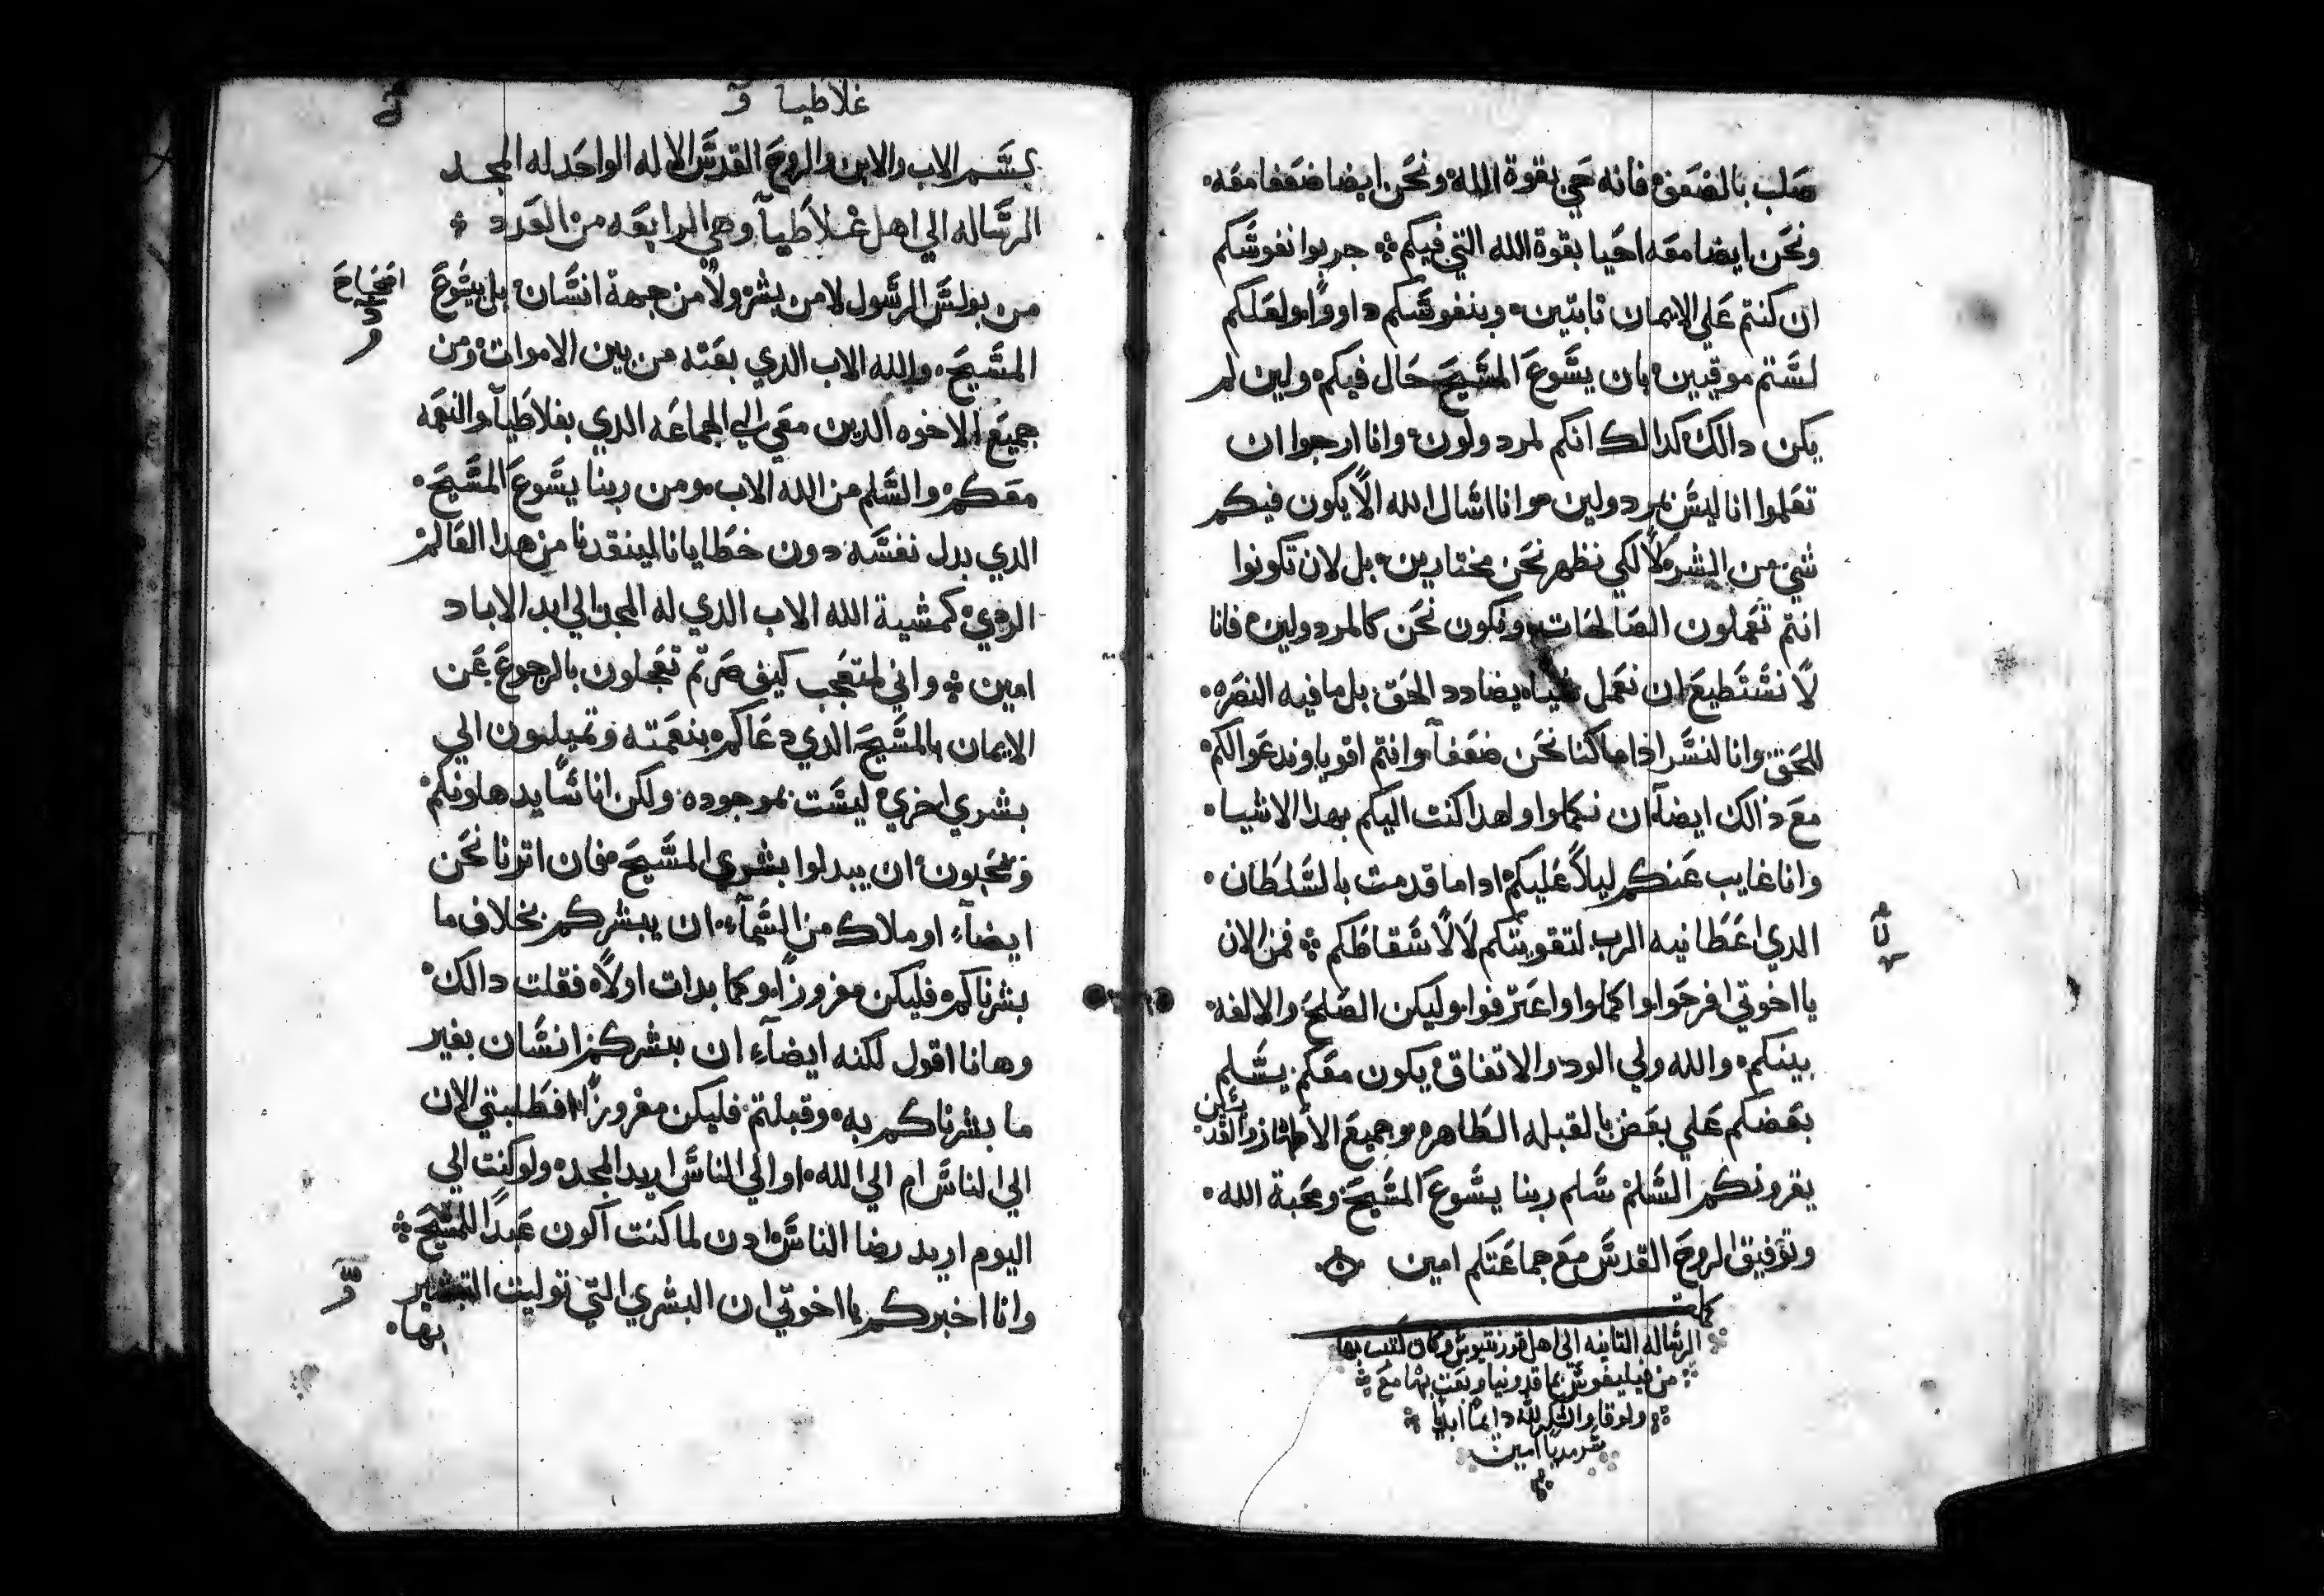 صلب بالضعف فانه حي بقوة الله ونحن ايضا ضعفا معه
ونحن ايضا معه احيا بقوة الله التي فيكم جربوا نفوسكم
ان كنتم علي الايمان ثابتين وبنفوسكم داووا ولعلكم
لستم موقنين بان يسوع المسيح حال فيكم ولين لم
يكن دالك كدالك انكم لمردولون وانا ارجوا ان
تعلموا انا ليس بمردولين وانا اسال الله الا يكون فيكم
شي من الشر لا لكي نظهر نحن مختارين بل لان تكونوا
انتم تعملون الصالحات ونكون نحن كالمردولين فانا
لا نستطيع ان نعمل شيا يضادد الحق بل ما فيه النصره
للحق وانا لنسر اذا ما كنا نحن ضعفا وانتم اقويا وندعوا لكم
مع ذالك ايضا ان تكملوا ولهدا كنت اليكم بهدا الاشيا
وانا غايب عنكم ليلا عليكم ادا ما قدمت بالسلطان
الدي اعطانيه الرب لتقويتكم لا لاسقاطكم فمن الان
يا اخوتي افرحوا واكملوا واعترفوا وليكن الصلح والالفه
بينكم والله ولي الود والاتفاق يكون معكم يسلم
بعضكم علي بعض بالقبله الطاهره وجميع الاطهار والقد
يسين
يقرونكم السلم سلم ربنا يسوع المسيح ومحبة الله
وتوفيق الروح القدس مع جماعتكم امين
كملت
الرساله التانيه الي اهل قورنتيوس وكان كتب بها
من فيليفوس بماقدونيا وبعت بها مع
ولوقا والشكر لله دايما ابديا
سرمديا امين
غلاطيا
بسم الاب والابن والروح القدس الاله الواحد له المجد
الرساله الي اهل غلاطيا وهي الرابعه من العدد
من بولس الرسول لا من بشر ولا من جهة انسان بل بيسوع
المسيح والله الاب الدي بعته من بين الاموات ومن
جميع الاخوه الدين معي الي الجماعه الدي بغلاطيا والنعمه
معكم والسلم من الله الاب ومن ربنا يسوع المسيح
الدي بدل نفسه دون خطايانا لينقدنا من هدا العالم
الردي كمشية الله الاب الدي له المجد الي ابد الاباد
امين واني لمتعجب كيف صرتم تعجلون بالرجوع عن
الايمان بالمسيح الدي دعاكم بنعمته وتميلون الي
بشري اخري ليست بموجوده ولكن اناسا يدهلونكم
ويحبون ان يبدلوا بشري المسيح فان اترنا نحن
ايضا او ملاك من السماء ان يبشركم بخلاف ما
بشرناكم فليكن مفروزا وكما بدات اولا فقلت دالك
وهانا اقول لكنه ايضا ان بشركم انسان بغير
ما بشرناكم به وقبلتم فليكن مفروزا افطلبتي الان
الي الناس ام الي الله او الي الناس اريد المجد ولو كنت الي
اليوم اريد رضا الناس ادن لما كنت اكون عبدا للمسيح
وانا اخبركم يا اخوتي ان البشري التي توليت التبشير
بها